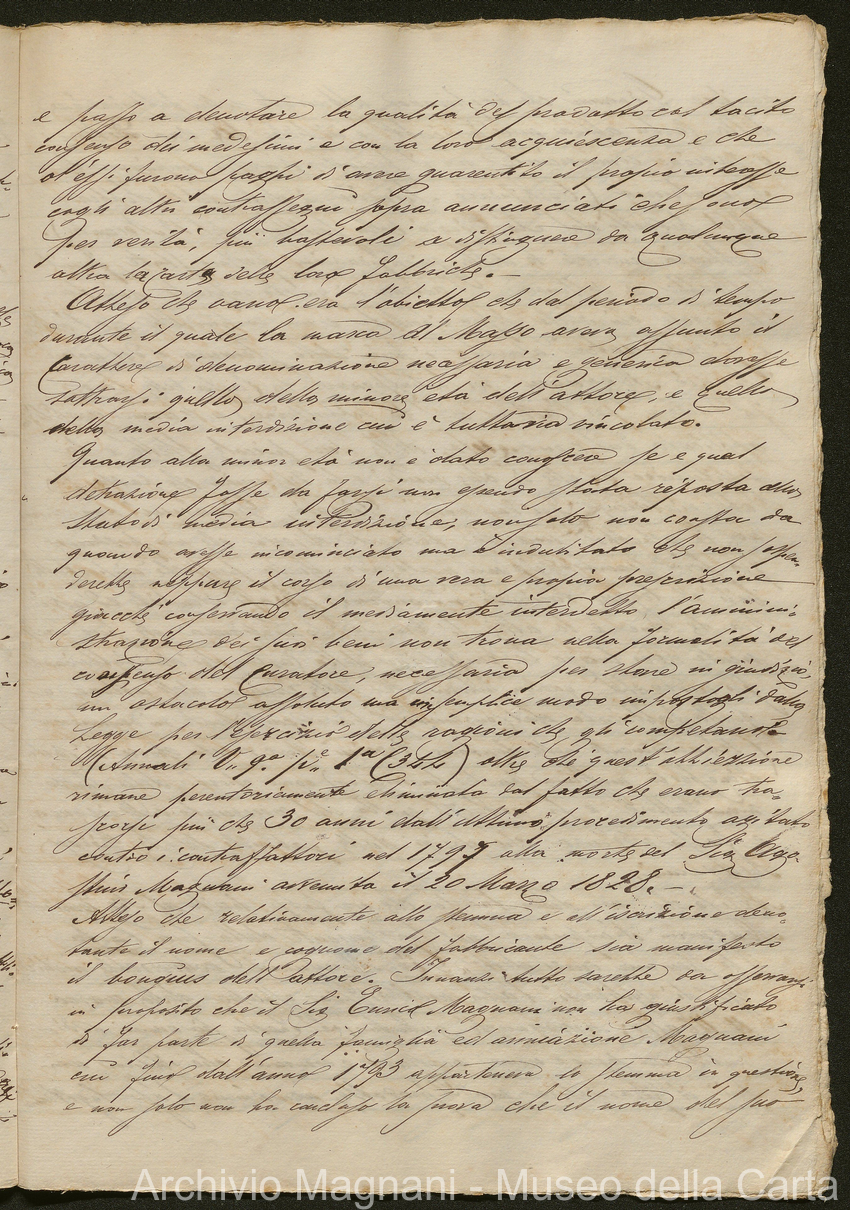 e passo a denotare la qualità del prodotto col tacito
consenso dei medesimi e con la loro acquiescenza e che
d'essi furono paghi di avere guarentito il proprio interesse
cogli altri contrassegni sopra annunciati che sono
per verità, più bastevoli a distinguere da qualunque
altra la carta delle loro fabbriche. –
Atteso che vano era l'obiettto che dal periodo di tempo
durante il quale la marca Al Masso aveva assunto il
Carattere di denominazione necessaria e generica dovesse
sottrarsi quello della minore età dell'attore, e quello
della media interdizione cui è tuttavia vincolato.
Quanto alla minor età non è dato conoscere se e qual
detrazione fosse da farsi non essendo stata risposta allo
stato di media interdizione, non solo non consta da
quando avesse incominciato ma è indubitato che non sospen-
derebbe neppure il corso di una vera e propria prescrizione
giacchè conservando il mediamente interdetto l'ammini-
strazione dei suoi beni non trova nella formalità del
consenso del Curatore, necessaria per stare in giudizio,
un ostacolo assoluto ma un semplice modo impostogli dalla
Legge per l'esercizio delle ragioni che gli competono
(Annali V. 9. p. 1a C 344) oltre che quest'obbiezione
rimane perentoriamente eliminata dal fatto che erano tra-
scorsi più che 30 anni dall'ultimo procedimento agitato
contro i contraffattori nel 1797 alla morte del Sig Ago-
stino Magnani avvenuta il 20 Marzo 1828. –
Atteso che relativamente allo stemma e all'iscrizione deno-
tante il nome e cognome del fabbricante sia manifesto
il dell'attore. Innanzi tutto sarebbe da osservarsi
in proposito che il Sig Enrico Magnani non ha giustificato
di far parte di quella famiglia ed associazione Magnani
cui fino dall'anno 1793 apparteneva lo stemma in questione,
e non solo non ha concluso la prova che il nome del suo
Archivio Magnani - Museo della Carta